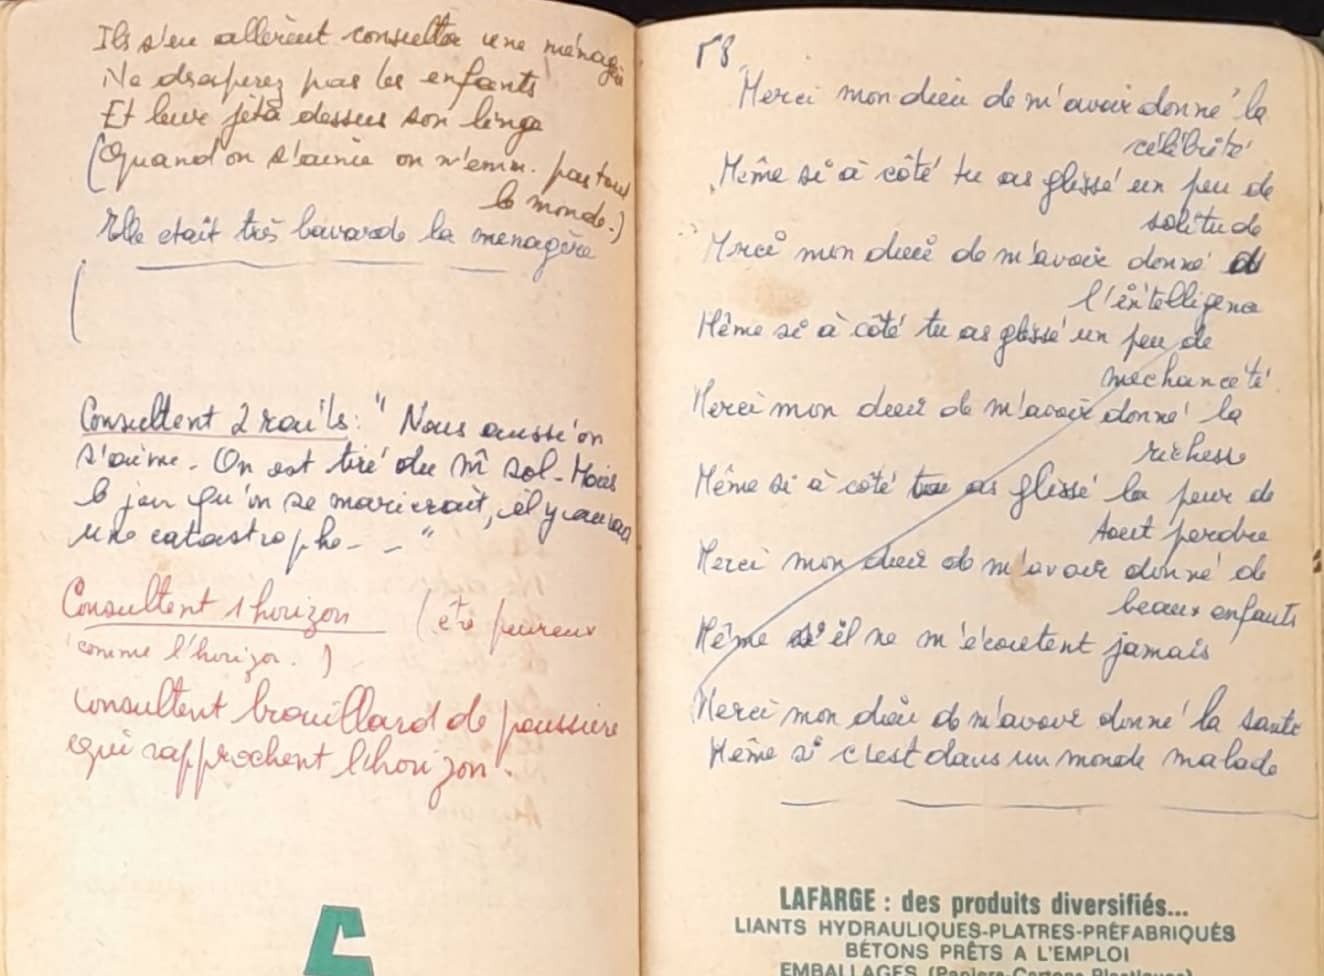 Ils s'en allèrent consulter une ménagère
Ne draperez pas les enfants
Et leur jeta dessus son linge
(Quand on s'aime on n'emm. pas tout
le monde.)
Elle etait très bavarde la menagère
(
Consultent 2 rails : " Nous aussi on
s'aime. On est tiré du m̂ sol. Mais
le jour qu'on se marierait, il y aurait
une catastrophe - - "
Consultent 1 horizon (être peureux
comme l'horizon.)
Consultent brouillard de poussière
qui rapprochent l'horizon.
58
Merci mon dieu de m'avoir donné la
célébrité
Même si à côté tu as glissé un peu de
solitude
Merci mon dieu de m'avoir donné
l'intelligence
Même si à côté tu as glissé un peu de
mechanceté
Merci mon dieu de m'avoir donné la
richesse
Même si à côté tu as glissé la peur de
tout perdre
Merci mon dieu de m'avoir donné de
beaux enfants
Même s'il ne m'écoutent jamais
Merci mon dieu de m'avoir donné la santé
Même si c'est dans un monde malade
LAFARGE : des produits diversifiés...
LIANTS HYDRAULIQUES-PLATRES-PRÉFABRIQUÉS
BÉTONS PRÊTS A L'EMPLOI
EMBALLAGES (Papiers-Cartons-Plastiques)